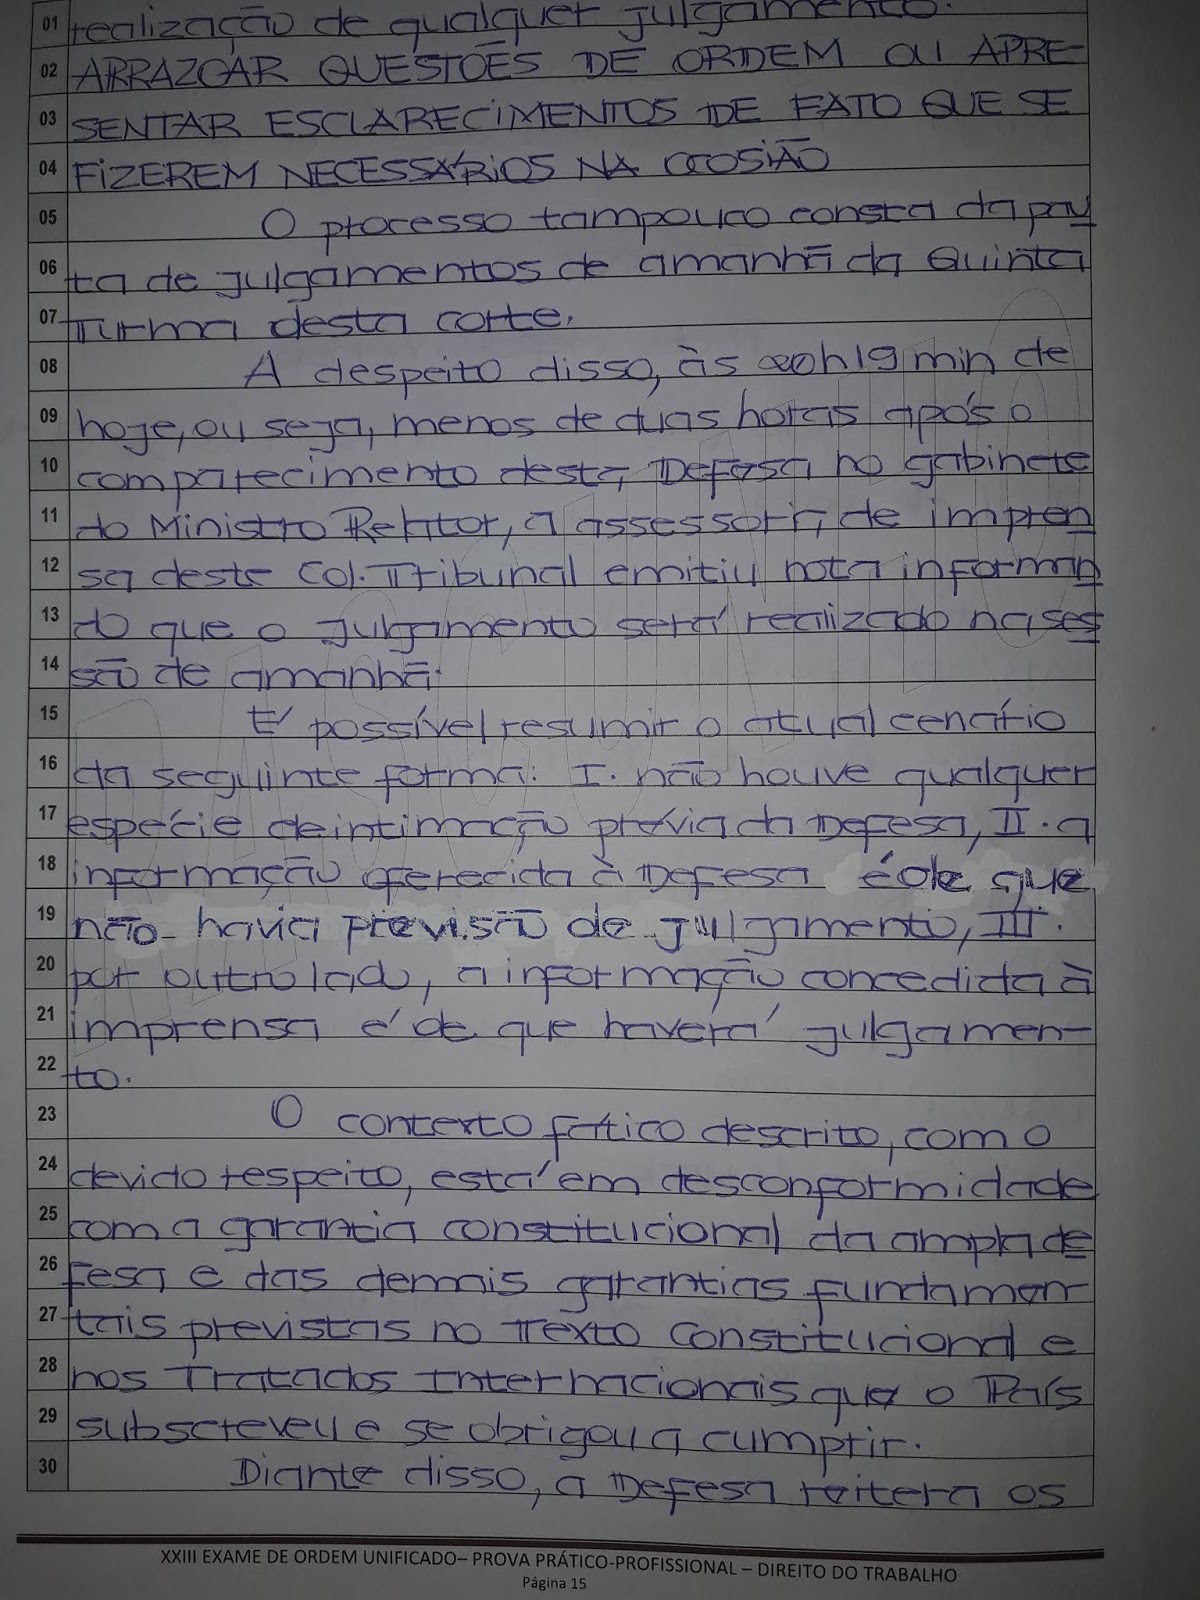 01 realização de qualquer julgamento.
02 ARRAZOAR QUESTÕES DE ORDEM OU APRE-
03 SENTAR ESCLARECIMENTOS DE FATO QUE SE
04 FIZEREM NECESSÁRIOS NA OCOSIÃO
05 O processo tampouco consta da pau
06 ta de julgamentos de amanhã da Quinta
07 Turma desta corte.
08 A despeito disso, às 20h19 min de
09 hoje, ou seja, menos de duas horas após o
10 comparecimento desta Defesa no gabinete
11 do Ministro Relator, a assessoria de impren
12 sa deste Col. Tribunal emitiu nota informan
13 do que o julgamento será realizado na ses
14 são de amanhã.
15 É possível resumir o atual cenário
16 da seguinte forma: I. não houve qualquer
17 espécie de intimação prévia da Defesa, II. a
18 informação oferecida à Defesa é de que
19 não havia previsão de julgamento, III.
20 por outro lado, a informação concedida à
21 imprensa é de que haverá julgamen-
22 to.
23 O contexto fático descrito, com o
24 devido respeito, está em desconformidade
25 com a garantia constitucional da ampla de
26 fesa e das demais garantias fundamen-
27 tais previstas no Texto Constitucional e
28 nos Tratados Internacionais que o País
29 subscreveu e se obrigou a cumprir.
30 Diante disso, a Defesa reitera os
XXIII EXAME DE ORDEM UNIFICADO– PROVA PRÁTICO-PROFISSIONAL – DIREITO DO TRABALHO
Página 15